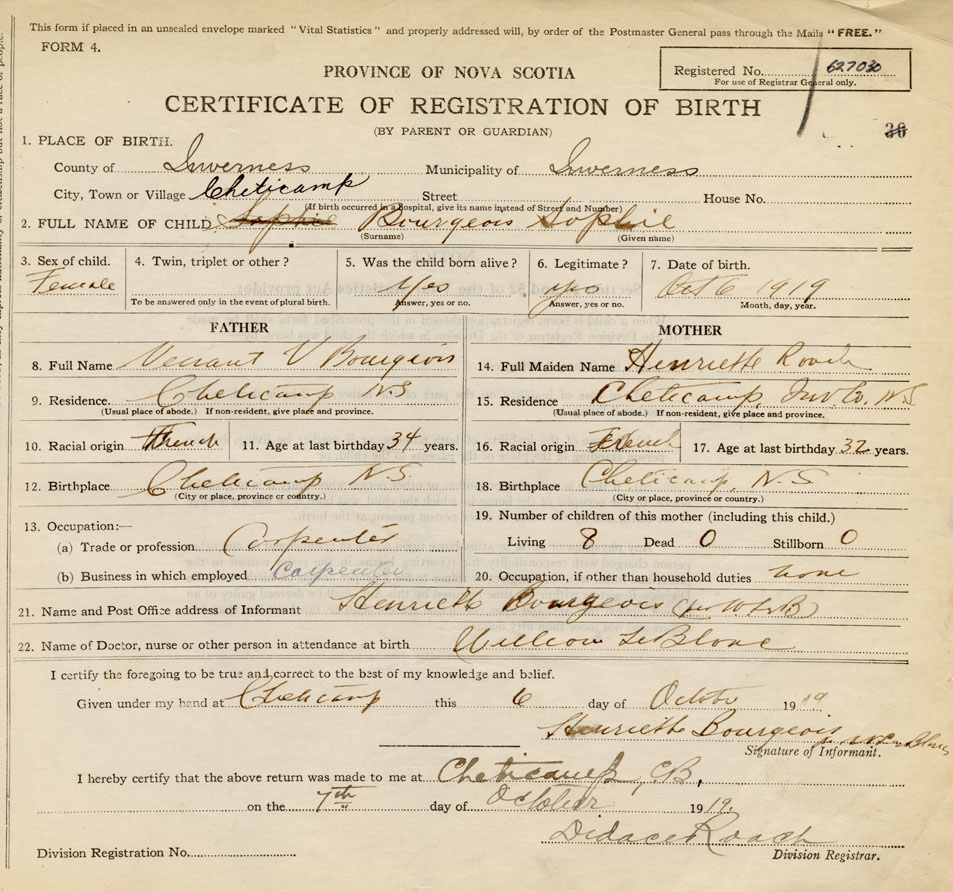 This form if placed in an unsealed envelope marked "Vital Statistics" and properly addressed will, by order of the Postmaster General pass through the Mails "FREE."
FORM 4.
Registered No. 627030
For use of Registrar General only.
PROVINCE OF NOVA SCOTIA
CERTIFICATE OF REGISTRATION OF BIRTH
(BY PARENT OR GUARDIAN)
36
1. PLACE OF BIRTH.
County of Inverness Municipality of Inverness
City, Town or Village Cheticamp Street House No.
(If birth occurred in a hospital, give its name instead of Street and Number)
2. FULL NAME OF CHILD Sophie Bourgeois Sophie
(Surname) (Given name)
3. Sex of child. 4. Twin, triplet or other? 5. Was the child born alive? 6. Legitimate? 7. Date of birth.
Female Yes yes Oct 6 1919
To be answered only in the event of plural birth. Answer, yes or no. Answer, yes or no. Month, day, year.
FATHER
8. Full Name V Bourgeois
9. Residence. Cheticamp N.S
(Usual place of abode.) If non-resident, give place and province.
10. Racial origin French 11. Age at last birthday 34 years.
12. Birthplace Cheticamp N.S.
(City or place, province or country.)
13. Occupation:—
(a) Trade or profession Carpenter
(b) Business in which employed Carpenter
MOTHER
14. Full Maiden Name Henriette Roach
15. Residence Cheticamp, Inv. Co. N.S
(Usual place of abode.) If non-resident, give place and province.
16. Racial origin French 17. Age at last birthday 32 years.
18. Birthplace Cheticamp, N.S
(City or place, province or country.)
19. Number of children of this mother (including this child.)
Living 8 Dead 0 Stillborn 0
20. Occupation, if other than household duties none
21. Name and Post Office address of Informant Henriette Bourgeois
22. Name of Doctor, nurse or other person in attendance at birth William LeBlanc
I certify the foregoing to be true and correct to the best of my knowledge and belief.
Given under my hand at Cheticamp this 6 day of October 1919
Henriette Bourgeois
Signature of Informant.
I hereby certify that the above return was made to me at Cheticamp, C.B,
on the 7th day of October 1919.
Didace Roach
Division Registration No. Division Registrar.